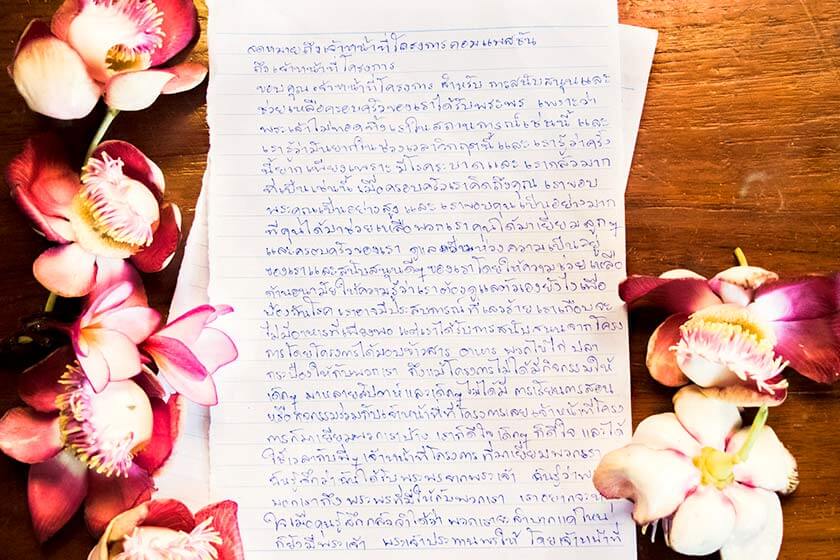 จดหมายถึงเจ้าหน้าที่โครงการคอมแพสชัน
ถึงเจ้าหน้าที่โครงการ
ขอบคุณเจ้าหน้าที่โครงการ สำหรับ การสนับสนุนและ
ช่วยเหลือครอบครัวของเราได้รับพระพร เพราะว่า
พระเจ้าไม่ทอดทิ้งเราในสถานการณ์เช่นนี้ และ
เรารู้ว่ามันยากในช่วงเวลาวิกฤตนี้และเรารู้ว่าครั้ง
นี้ยากเพียงเพราะมีโรคระบาดและ เรากลัวมาก
ที่เป็นเช่นนี้ เมื่อครอบครัวเราคิดถึงคุณ เราขอบ
พระคุณเป็นอย่างสูง และเราขอบคุณเป็นอย่างมาก
ที่คุณได้มาช่วยเหลือพวกเรา คุณได้มาเยี่ยมลูกๆ
และครอบครัวของเรา ดูแลห่วงความเป็นอยู่
ของเราและสนับสนุนดีๆของเราโดยให้ความช่วยเหลือ
ด้านอนามัยให้ความรู้ว่าเราต้องดูแลตัวเองยังไงเพื่อ
ป้องกันโรค เราอาจมีประสบการณ์ที่เลวร้าย เราเกือบจะ
ไม่มีอาหารที่เพียงพอ แต่เราได้รับการสนับสนุนจากโครง
การโดยโครงการได้มอบข้าวสาร อาหาร พวกไข่ไก่ ปลา
กระป๋องให้กับพวกเรา ถึงแม้โครงการไม่ได้มีกิจกรรมให้
เด็กๆ มาหลายสัปดาห์ และเด็กๆไม่ได้มี การเรียนการสอน
หรือกิจกรรมร่วมกับเจ้าหน้าที่โครงการเลย เจ้าหน้าที่โครง
การก็มาเยี่ยมพวกเราบ้าง เราก็ดีใจ เด็กๆ ก็ดีใจ และได้
ใช้เวลากับพี่ๆ เจ้าหน้าที่โครงการ ที่มาเยี่ยมพวกเรา
ฉันรู้สึกว่าฉันได้รับพระพรจากพระเจ้า ฉันรู้ว่า
เราถึง พระพรที่มีให้กับพวกเรา เราอยากจะ
ใจเมื่อคุณรู้สึกกลัวจำไว้ว่า พวกเราจะลำบากแค่ไหน
ก็ยังมีพระเจ้า พระเจ้าประทานพรให้ โดยเจ้าหน้าที่